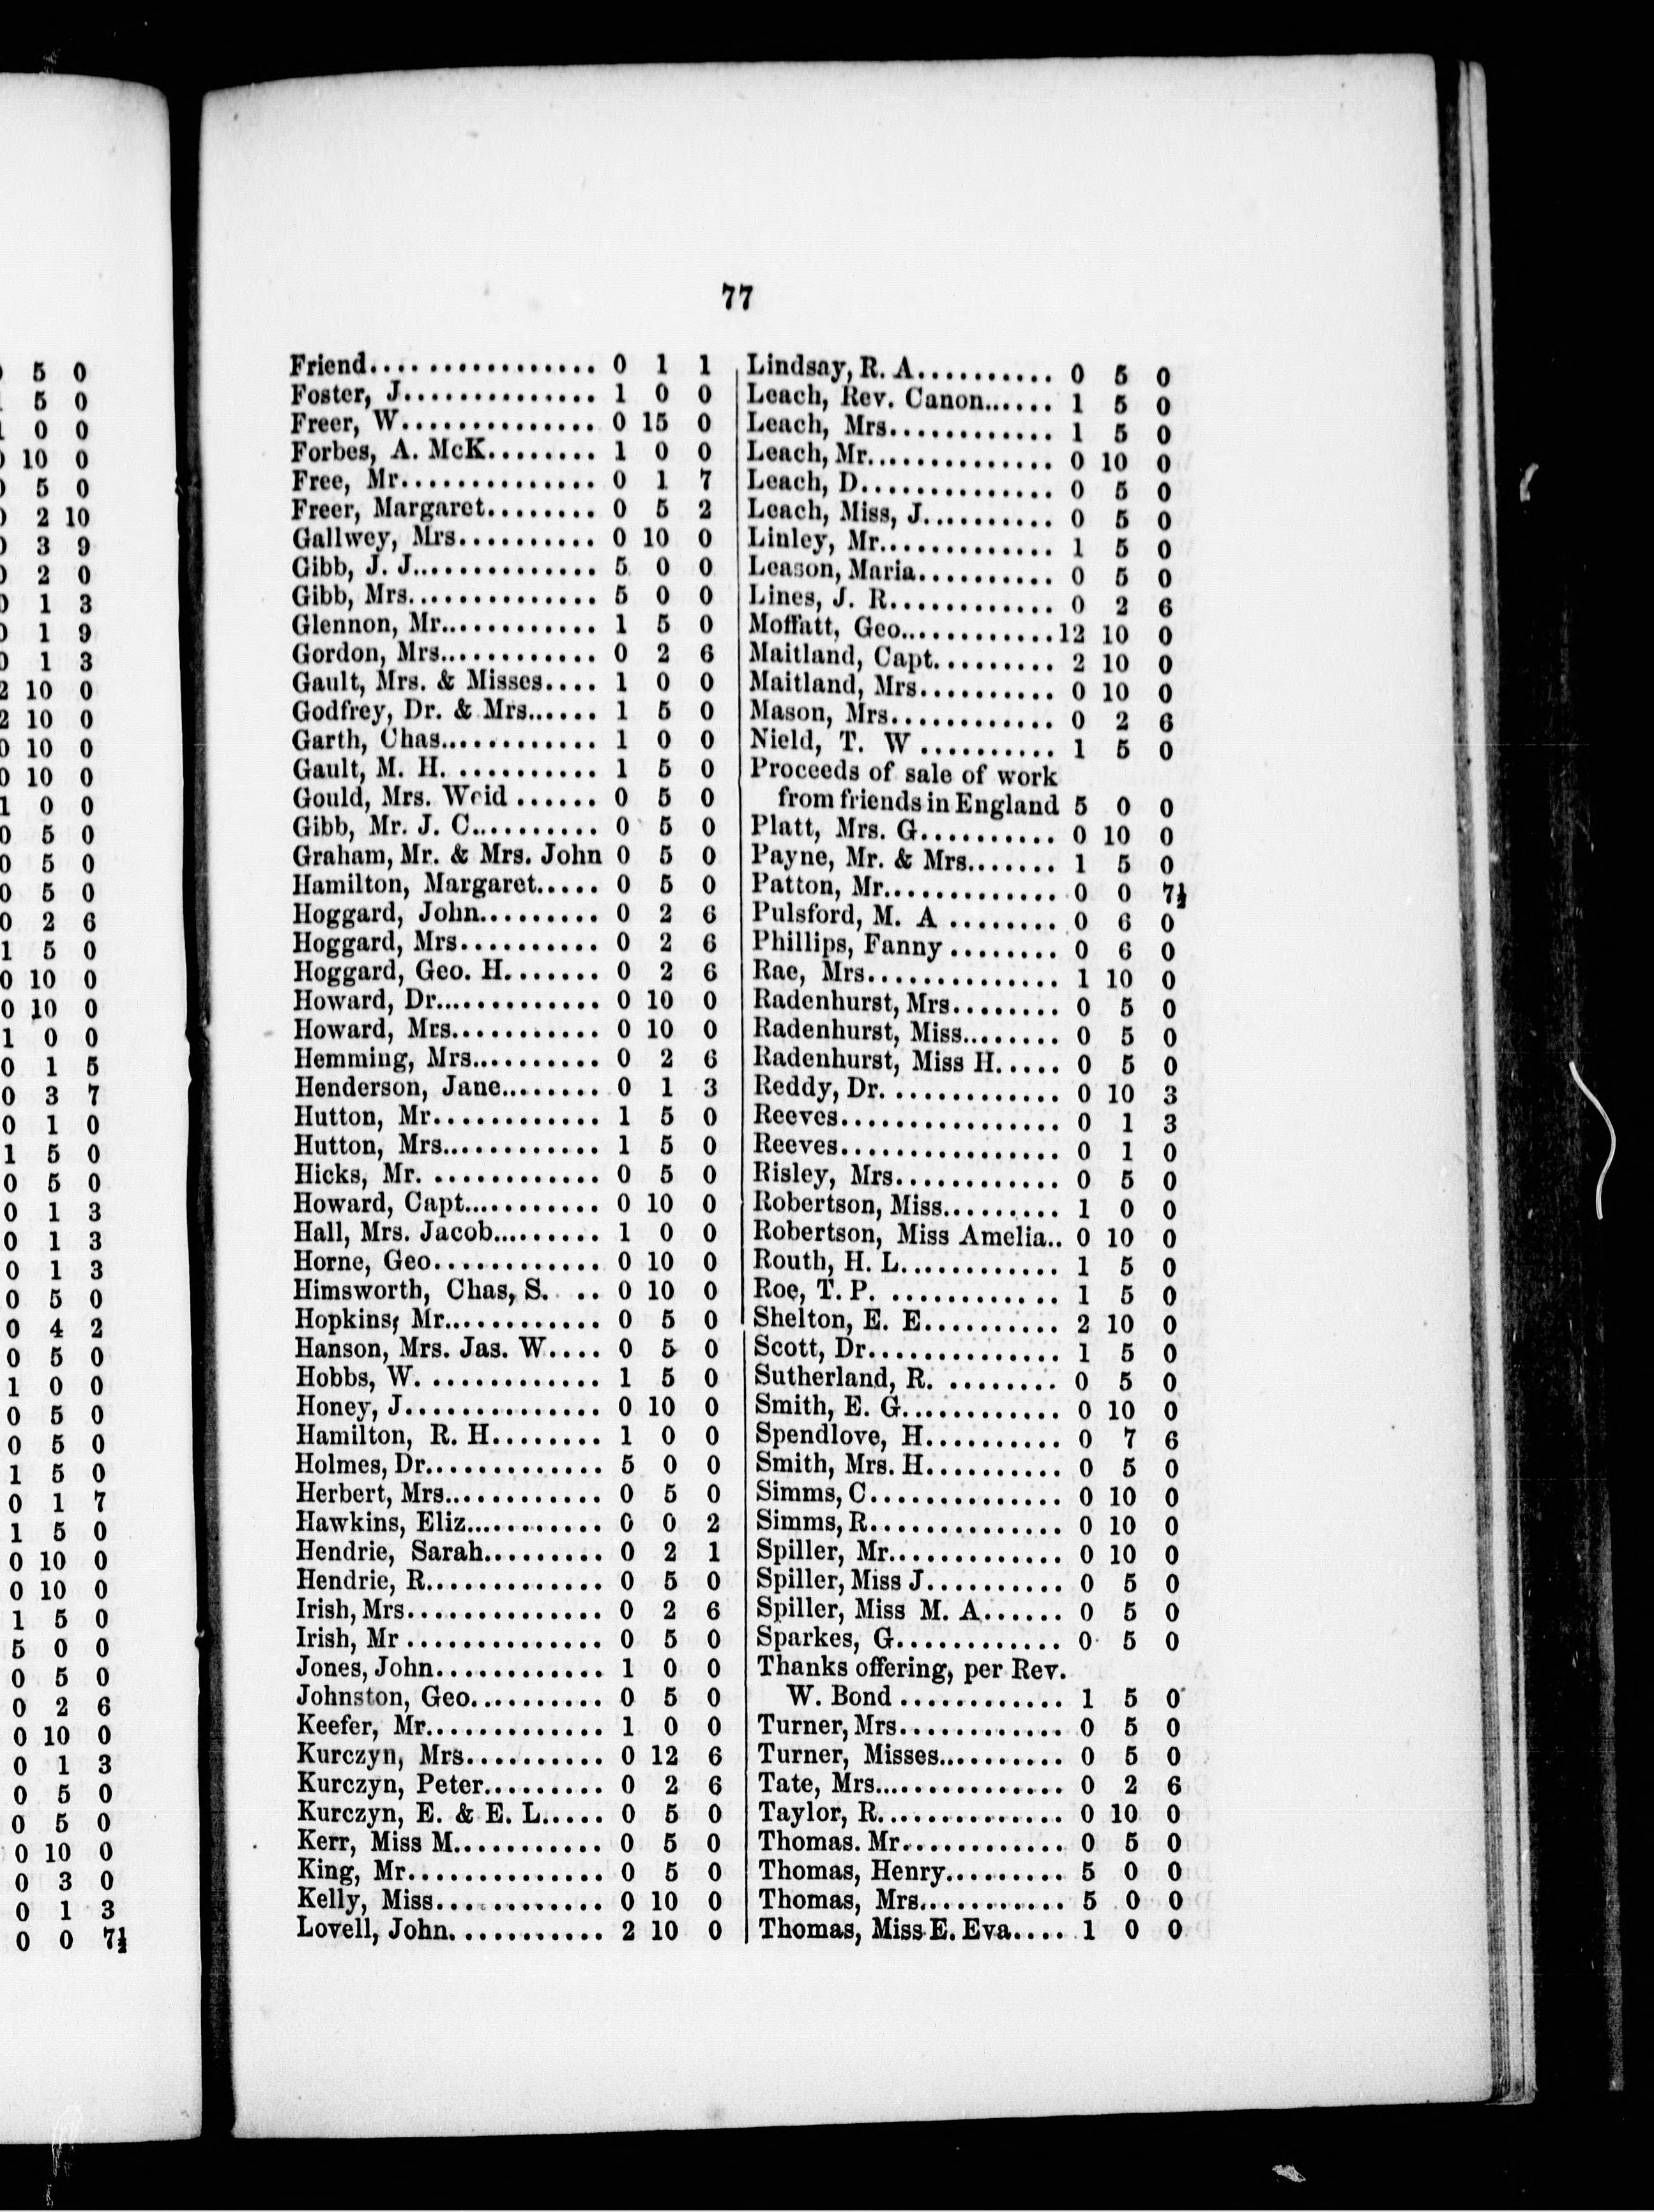 5 0
5 0
0 0
10 0
5 0
2 10
3 9
2 0
1 3
1 9
1 3
2 10 0
2 10 0
0 10 0
0 10 0
1 0 0
0 5 0
0 5 0
0 5 0
0 2 6
1 5 0
0 10 0
0 10 0
1 0 0
0 1 5
0 3 7
0 1 0
1 5 0
0 5 0
0 1 3
0 1 3
0 1 3
0 5 0
0 4 2
0 5 0
1 0 0
0 5 0
0 5 0
1 5 0
0 1 7
1 5 0
0 10 0
0 10 0
1 5 0
5 0 0
0 5 0
0 2 6
0 10 0
0 1 3
0 5 0
0 5 0
0 10 0
0 3 0
0 1 3
0 0 7½
77
Friend................ 0 1 1
Foster, J.............. 1 0 0
Freer, W.............. 0 15 0
Forbes, A. McK........ 1 0 0
Free, Mr.............. 0 1 7
Freer, Margaret........ 0 5 2
Gallwey, Mrs.......... 0 10 0
Gibb, J. J.............. 5 0 0
Gibb, Mrs.............. 5 0 0
Glennon, Mr............ 1 5 0
Gordon, Mrs............ 0 2 6
Gault, Mrs. & Misses.... 1 0 0
Godfrey, Dr. & Mrs...... 1 5 0
Garth, Chas............ 1 0 0
Gault, M. H. .......... 1 5 0
Gould, Mrs. Weid ...... 0 5 0
Gibb, Mr. J. C.......... 0 5 0
Graham, Mr. & Mrs. John 0 5 0
Hamilton, Margaret..... 0 5 0
Hoggard, John......... 0 2 6
Hoggard, Mrs.......... 0 2 6
Hoggard, Geo. H....... 0 2 6
Howard, Dr............. 0 10 0
Howard, Mrs........... 0 10 0
Hemming, Mrs.......... 0 2 6
Henderson, Jane........ 0 1 3
Hutton, Mr............ 1 5 0
Hutton, Mrs............ 1 5 0
Hicks, Mr. ............ 0 5 0
Howard, Capt........... 0 10 0
Hall, Mrs. Jacob......... 1 0 0
Horne, Geo............ 0 10 0
Himsworth, Chas, S. .. 0 10 0
Hopkins, Mr............ 0 5 0
Hanson, Mrs. Jas. W.... 0 5 0
Hobbs, W. ............. 1 5 0
Honey, J............... 0 10 0
Hamilton, R. H........ 1 0 0
Holmes, Dr............. 5 0 0
Herbert, Mrs............ 0 5 0
Hawkins, Eliz.......... 0 0 2
Hendrie, Sarah......... 0 2 1
Hendrie, R............. 0 5 0
Irish, Mrs............... 0 2 6
Irish, Mr ............... 0 5 0
Jones, John............ 1 0 0
Johnston, Geo.......... 0 5 0
Keefer, Mr............. 1 0 0
Kurczyn, Mrs.......... 0 12 6
Kurczyn, Peter......... 0 2 6
Kurczyn, E. & E. L..... 0 5 0
Kerr, Miss M........... 0 5 0
King, Mr............... 0 5 0
Kelly, Miss............ 0 10 0
Lovell, John........... 2 10 0
Lindsay, R. A.......... 0 5 0
Leach, Rev. Canon...... 1 5 0
Leach, Mrs............ 1 5 0
Leach, Mr.............. 0 10 0
Leach, D.............. 0 5 0
Leach, Miss, J.......... 0 5 0
Linley, Mr............. 1 5 0
Leason, Maria.......... 0 5 0
Lines, J. R............ 0 2 6
Moffatt, Geo............12 10 0
Maitland, Capt......... 2 10 0
Maitland, Mrs.......... 0 10 0
Mason, Mrs............ 0 2 6
Nield, T. W .......... 1 5 0
Proceeds of sale of work
from friends in England 5 0 0
Platt, Mrs. G.......... 0 10 0
Payne, Mr. & Mrs....... 1 5 0
Patton, Mr............. 0 0 7½
Pulsford, M. A ........ 0 6 0
Phillips, Fanny ........ 0 6 0
Rae, Mrs.............. 1 10 0
Radenhurst, Mrs........ 0 5 0
Radenhurst, Miss........ 0 5 0
Radenhurst, Miss H..... 0 5 0
Reddy, Dr. ............ 0 10 3
Reeves................ 0 1 3
Reeves................ 0 1 0
Risley, Mrs............ 0 5 0
Robertson, Miss......... 1 0 0
Robertson, Miss Amelia.. 0 10 0
Routh, H. L............ 1 5 0
Roe, T. P. ............ 1 5 0
Shelton, E. E.......... 2 10 0
Scott, Dr.............. 1 5 0
Sutherland, R. ........ 0 5 0
Smith, E. G............ 0 10 0
Spendlove, H.......... 0 7 6
Smith, Mrs. H.......... 0 5 0
Simms, C.............. 0 10 0
Simms, R.............. 0 10 0
Spiller, Mr............. 0 10 0
Spiller, Miss J.......... 0 5 0
Spiller, Miss M. A...... 0 5 0
Sparkes, G............ 0 5 0
Thanks offering, per Rev.
W. Bond ............ 1 5 0
Turner, Mrs............ 0 5 0
Turner, Misses.......... 0 5 0
Tate, Mrs.............. 0 2 6
Taylor, R.............. 0 10 0
Thomas. Mr............ 0 5 0
Thomas, Henry......... 5 0 0
Thomas, Mrs........... 5 0 0
Thomas, Miss E. Eva.... 1 0 0